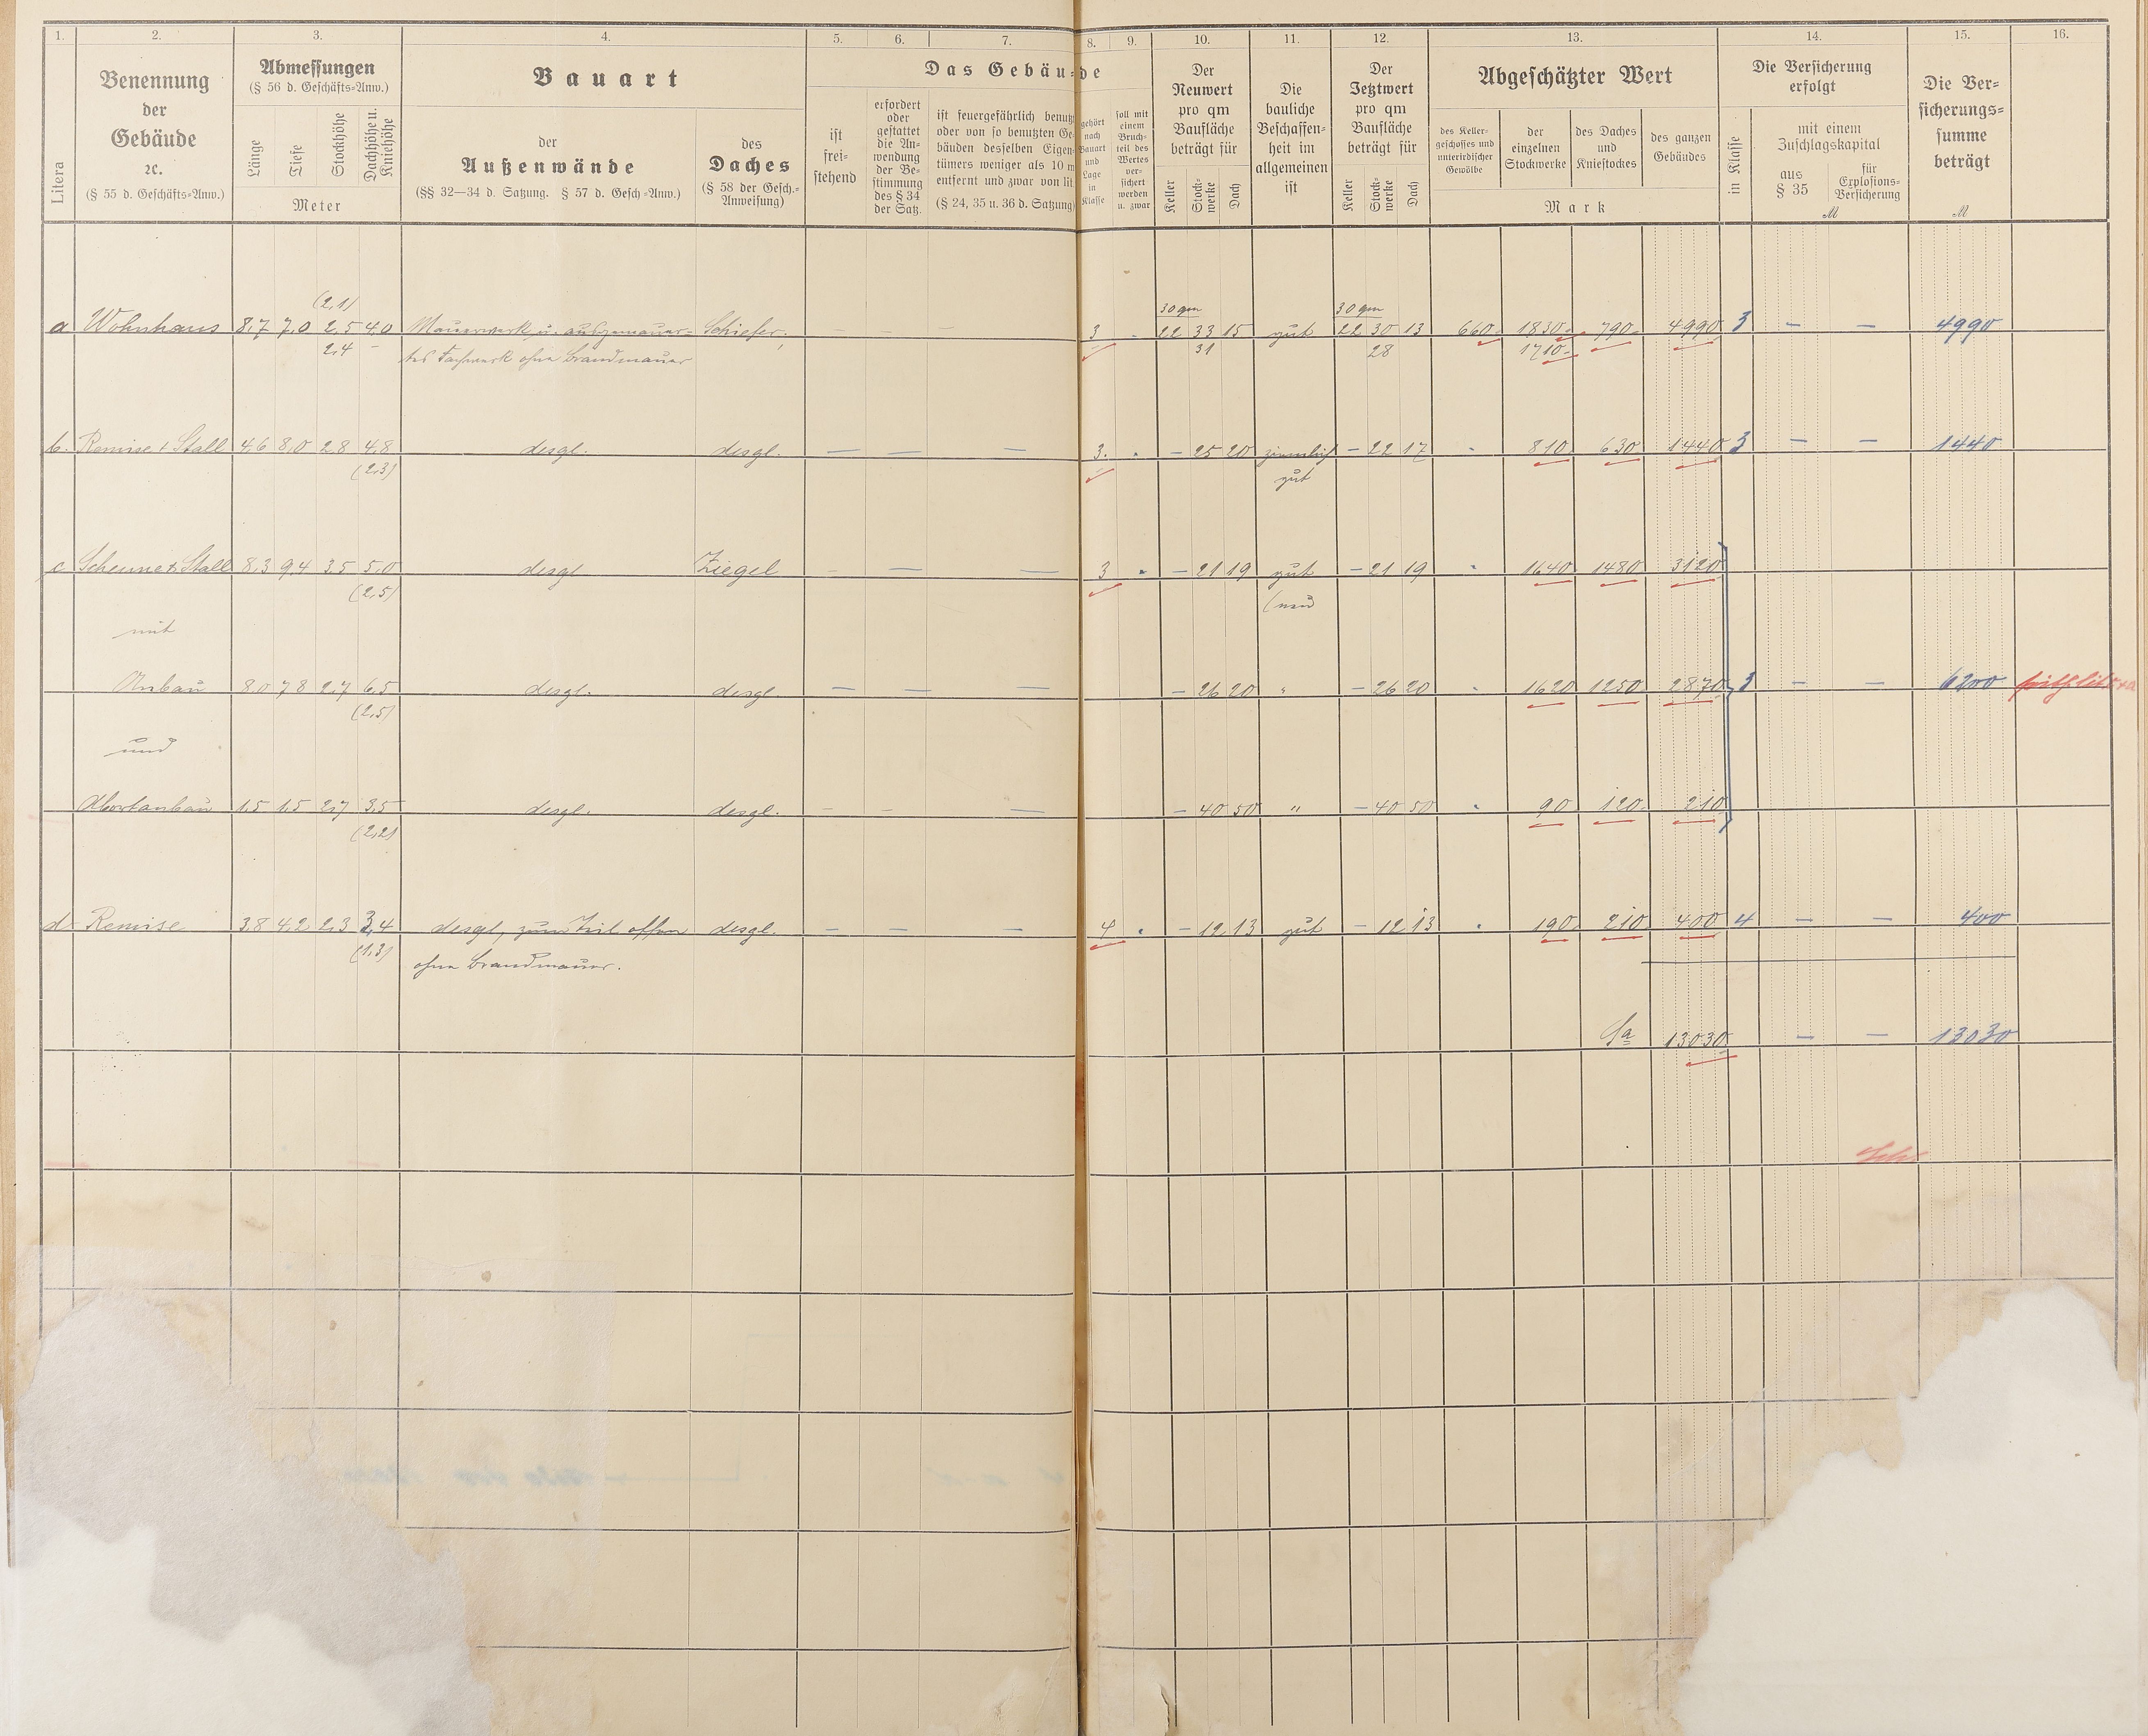 1. 2. 3. 4. 5. 6. 7. 8. 9. 10. 11. 12. 13. 14. 15. 16.
Litera
Benennung
der
Gebäude
ꝛc.
(§ 55 d. Geschäfts-Anw.)
Abmessungen
(§ 56 d. Geschäfts-Anw.)
Länge
Tiefe
Stockhöhe
Dachhöhe u.
Kniehöhe
Meter
Bauart
der
Außenwände
(§§ 32—34 d. Satzung. § 57 d. Gesch.-Anw.)
des
Daches
(§ 58 der Gesch.-
Anweisung)
Das Gebäude
ist
frei-
stehend
erfordert
oder
gestattet
die An-
wendung
der Be-
stimmung
des § 34
der Satz.
ist feuergefährlich benutzt
oder von so benutzten Ge-
bäuden desselben Eigen-
tümers weniger als 10 m
entfernt und zwar von lit.
(§ 24, 35 u. 36 d. Satzung)
gehört
nach
Bauart
und
Lage
in
Klasse
soll mit
einem
Bruch-
teil des
Wertes
ver-
sichert
werden
u. zwar
Der
Neuwert
pro qm
Baufläche
beträgt für
Keller
Stock-
werke
Dach
Die
bauliche
Beschaffen-
heit im
allgemeinen
ist
Der
Jetztwert
pro qm
Baufläche
beträgt für
Keller
Stock-
werke
Dach
Abgeschätzter Wert
des Keller-
geschosses und
unterirdischer
Gewölbe
der
einzelnen
Stockwerke
des Daches
und
Kniestockes
des ganzen
Gebäudes
Mark
Die Versicherung
erfolgt
in Klasse
mit einem
Zuschlagskapital
aus
§ 35
für
Explosions-
Versicherung
M
Die Ver-
sicherungs-
summe
beträgt
M
(2,1) 30 qm 30 qm
a Wohnhaus 8,7 7,0 2,5 4,0 Mauerwerk u. ausgemauer- Schiefer. — — — 3 - 22 33 15 gut 22 30 13 660. 1830. 790. 4990 3 — — 4990
2,4 – tes Fachwerk ohne Brandmauer 31 28 1710.
b. Remise + Stall 4,6 8,0 2,8 4,8 desgl. desgl. — — — 3. - — 25 20 ziemlich — 22 17 - 810 630 1440 3 — — 1440
(2,3) gut
c Scheune + Stall 8,3 9,4 3,5 5,0 desgl Ziegel — — — 3 - — 21 19 gut — 21 19 - 1640 1480 3120
(2,5) (neu
mit
Anbau 8,0 7,8 2,7 6,5 desgl. desgl — — — — 26 20 " — 26 20 - 1620 1250 2870 3 — — 6200
(2,5)
und
Abortanbau 1,5 1,5 2,7 3,5 desgl. desgl. — — — — 40 50 " — 40 50 - 90 120 210
(2,2)
d Remise 3,8 4,2 2,3 3,4 desgl, zum Teil offen desgl. — — — 4 - — 12 13 gut — 12 13 - 190 210 400 4 — — 400
(1,3) ohne Brandmauer.
Sa 13030 — — 13030